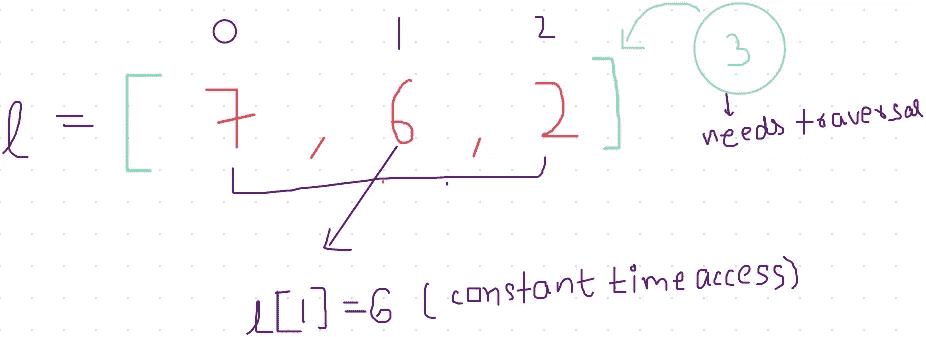 0 1 2
l = [ 7 , 6 , 2 ] 3
needs traversal
l[1]=6 (constant time access)